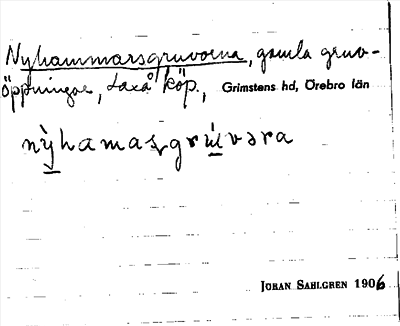 Nyhammarsgruvorna, gamla gruv-
öppningar, Laxå köp., Grimstens hd, Örebro län
nỳhamaʂgrúvəra
JOHAN SAHLGREN 1906